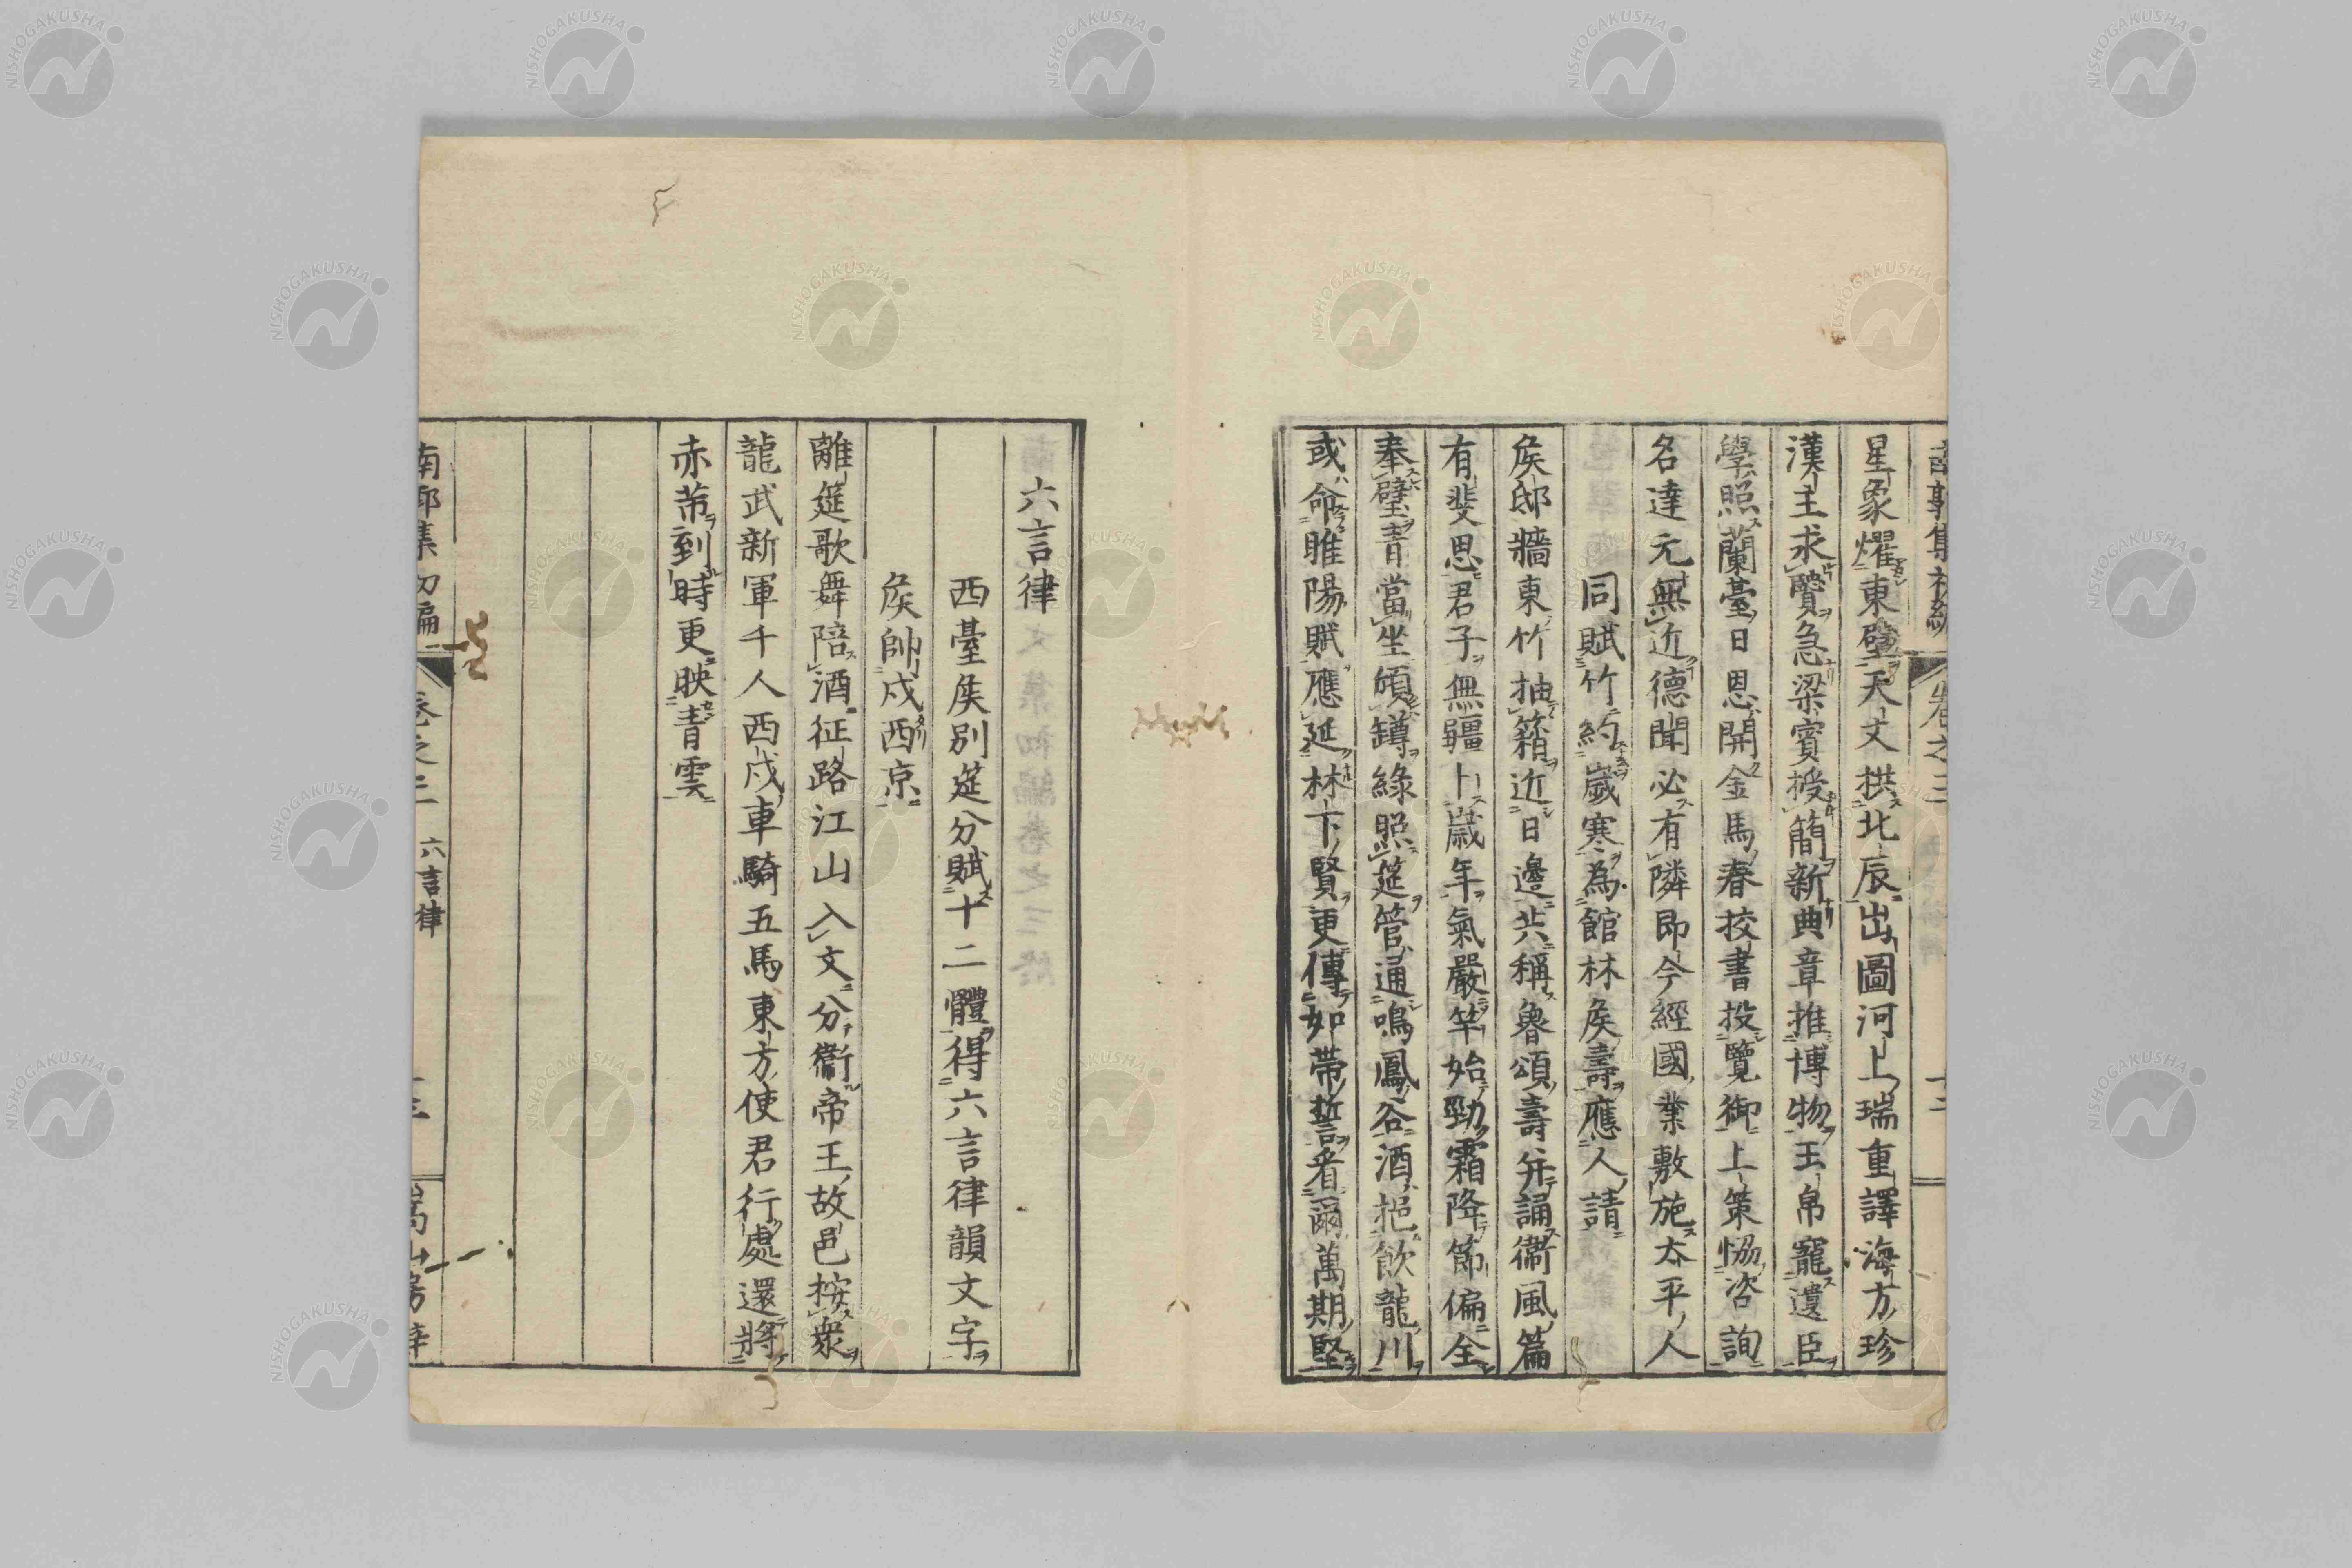 星象燿東壁天文拱北辰出圖河上瑞重譯海方珍
漢主求賢急梁賓授簡新典章推博物玉帛寵遺臣
學照蘭臺日恩開金馬春挍書投覽御上策恊咨詢
名達元無近德聞必有隣即今經國業敷施太平人
同賦竹約歲寒為館林矦壽應人請
矦邸牆東竹抽箱近日邊共稱魯頌壽并誦衞風篇
有斐思君子無疆卜歲年氣嚴竿始勁霜降節偏全
奉璧青當坐傾罇綠照筵管通鳴鳳谷酒挹飲龍川
或命睢陽賦應延林下賢更傳如帶誓看爾萬期堅
卷之三
六言律
西臺矦別筵分賦十二體得六言律韻文字
矦帥戍西京
離筵歌舞陪酒征路江山入文分衞帝王故邑按衆
龍武新軍千人西戍車騎五馬東方使君行處還將
赤芾到時更映青雲
南郭集初編
卷之三
六言律
NISHOGAKUSHA